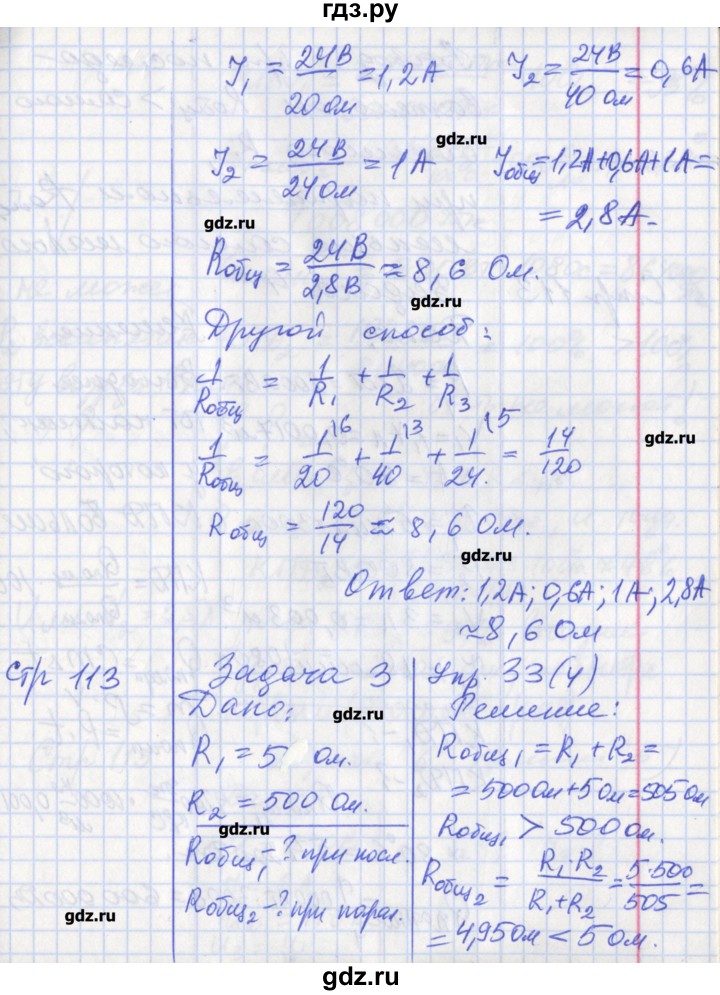 гдз.ру
I₁ = 24В/20 Ом = 1,2 А   I₂ = 24В/40 Ом = 0,6А
gdz.ru
I₂ = 24В/24 Ом = 1 А   Iобщ = 1,2А+0,6А+1А =
gdz.ru
= 2,8 А.
Rобщ = 24В/2,8В ≈ 8,6 Ом.
gdz.ru
Другой способ:
1/Rобщ = 1/R₁ + 1/R₂ + 1/R₃
gdz.ru
1/Rобщ = 1/20 \6 + 1/40 \3 + 1/24 \5 = 14/120
Rобщ = 120/14 ≈ 8,6 Ом.
gdz.ru
Ответ: 1,2А; 0,6А; 1А; 2,8А
≈8,6 Ом
Стр 113   Задача 3   Упр. 33(4)
Дано:
gdz.ru
R₁ = 5 Ом.
R₂ = 500 Ом.
gdz.ru
Rобщ₁ - ? при посл.
Rобщ₂ - ? при парал.
gdz.ru
Решение:
Rобщ₁ = R₁ + R₂ =
= 500 Ом + 5 Ом = 505 Ом
gdz.ru
Rобщ₁ > 500 Ом.
Rобщ₂ = R₁·R₂/R₁+R₂ = 5·500/505 =
= 4,95 Ом < 5 Ом.
gdz.ru
гдз.ру